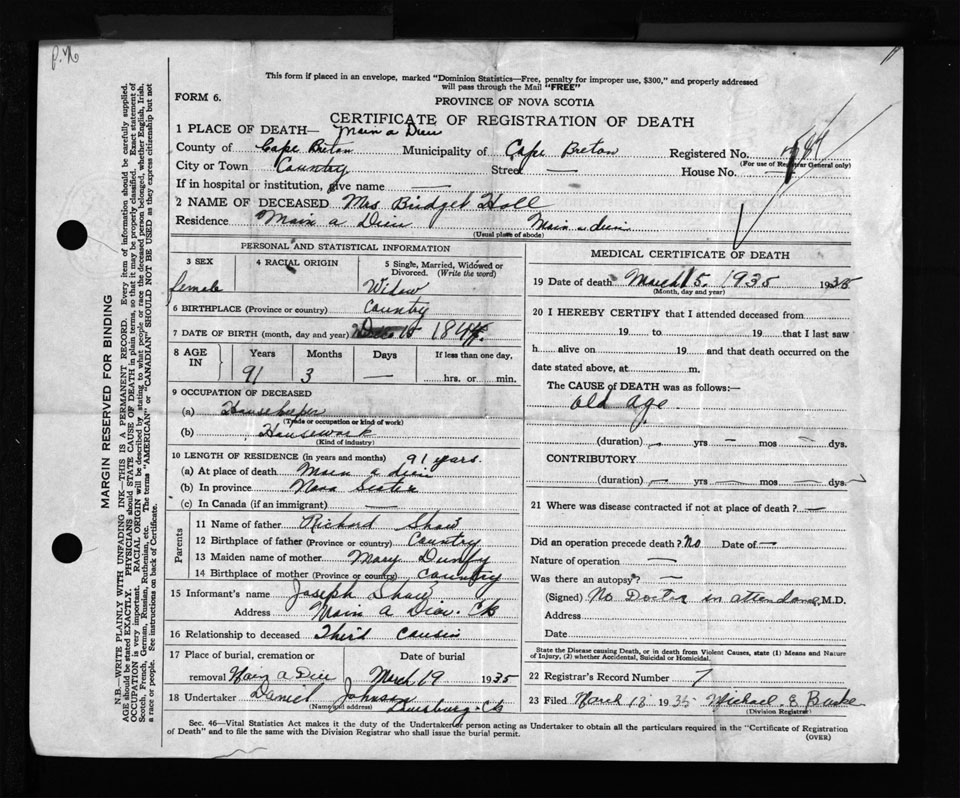 P.N
This form if placed in an envelope, marked "Dominion Statistics—Free, penalty for improper use, $300," and properly addressed
will pass through the Mail "FREE"
FORM 6.
PROVINCE OF NOVA SCOTIA
CERTIFICATE OF REGISTRATION OF DEATH
1 PLACE OF DEATH— Main a Dieu
County of Cape Breton Municipality of Cape Breton Registered No.
(For use of Registrar General only)
City or Town Country Street — House No. —
If in hospital or institution, give name —
2 NAME OF DECEASED Mrs Bridget Holl
Residence Main a Dieu Main a dieu
(Usual place of abode)
PERSONAL AND STATISTICAL INFORMATION
3 SEX 4 RACIAL ORIGIN 5 Single, Married, Widowed or
Divorced. (Write the word)
female Widow
6 BIRTHPLACE (Province or country) Country
7 DATE OF BIRTH (month, day and year)
8 AGE IN Years Months Days If less than one day,
91 3 — hrs. or min.
9 OCCUPATION OF DECEASED
(a) Housekeeper
(Trade or occupation or kind of work)
(b) Housework
(Kind of industry)
10 LENGTH OF RESIDENCE (in years and months) 91 years.
(a) At place of death Main a dieu
(b) In province Nova Scotia
(c) In Canada (if an immigrant) —
Parents
11 Name of father Richard Shaw
12 Birthplace of father (Province or country) Country
13 Maiden name of mother Mary Dunfy
14 Birthplace of mother (Province or country) Country
15 Informant's name Joseph Shaw
Address Main A Dieu. CB
16 Relationship to deceased Third Cousin
17 Place of burial, cremation or Date of burial
removal Main a Dieu March 19 1935
18 Undertaker Daniel Johnson
(Name and address) Louisburg CB
MEDICAL CERTIFICATE OF DEATH
19 Date of death March 15. 1935 1935
(Month, day and year)
20 I HEREBY CERTIFY that I attended deceased from
19 to 19 that I last saw
h alive on 19 and that death occurred on the
date stated above, at m.
The CAUSE of DEATH was as follows:—
old age.
(duration) — yrs — mos — dys.
CONTRIBUTORY
(duration) — yrs — mos — dys.
21 Where was disease contracted if not at place of death? —
Did an operation precede death? No Date of —
Nature of operation —
Was there an autopsy? —
(Signed) No Doctor in attendance M.D.
Address
Date
State the Disease causing Death, or in death from Violent Causes, state (1) Means and Nature
of Injury, (2) whether Accidental, Suicidal or Homicidal.
22 Registrar's Record Number 7
23 Filed March 18 1935 Michael E Burke
(Division Registrar)
Sec. 46—Vital Statistics Act makes it the duty of the Undertaker or person acting as Undertaker to obtain all the particulars required in the "Certificate of Registration
of Death" and to file the same with the Division Registrar who shall issue the burial permit.
(OVER)
MARGIN RESERVED FOR BINDING
N.B.—WRITE PLAINLY WITH UNFADING INK—THIS IS A PERMANENT RECORD. Every item of information should be carefully supplied.
AGE should be stated EXACTLY. PHYSICIANS should STATE CAUSE OF DEATH in plain terms, so that it may be properly classified. Exact statement of
OCCUPATION is very important. RACIAL ORIGIN will be described by stating to what people or race the deceased person belonged, whether English, Irish,
Scotch, French, German, Russian, Ruthenian, etc. The terms "AMERICAN" or "CANADIAN" SHOULD NOT BE USED as they express citizenship but not
a race or people. See instructions on back of Certificate.